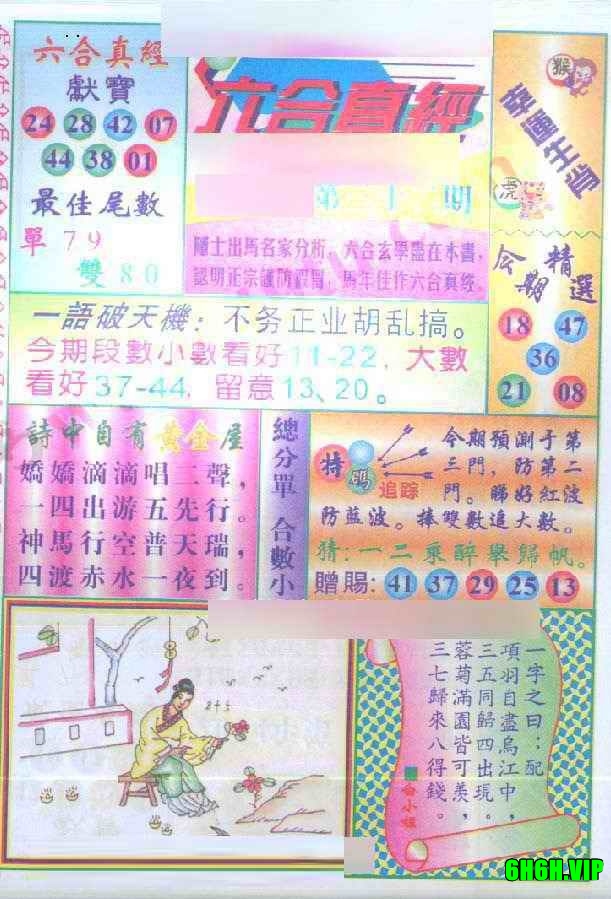 六合真經
獻寶
24 28 42 07
44 38 01
最佳尾數
單79
雙80
六合真經
第
期
隱士出馬名家分析，六合玄學盡在本書，
認明正宗謹防假冒，馬年佳作六合真經。
猴
虎
幸運生肖
今期精選
18 47
36
21 08
一語破天機：不务正业胡乱搞。
今期段數小數看好11-22，大數
看好37-44，留意13、20。
詩中自有黄金屋
嬌嬌滴滴唱二聲，
一四出游五先行。
神馬行空普天瑞，
四渡赤水一夜到。
總分單 合數小
特碼
追踪
今期預測于第
三門，防第二
門。睇好紅波
防蓝波。捧雙數追大數。
猜：一二乘醉舉歸帆。
贈賜：41 37 29 25 13
一字之曰：配
項羽自盡烏江中，
三五同歸四出現。
蓉菊滿園皆可羨，
三七歸來八得錢。
白小姐
6H6H.VIP